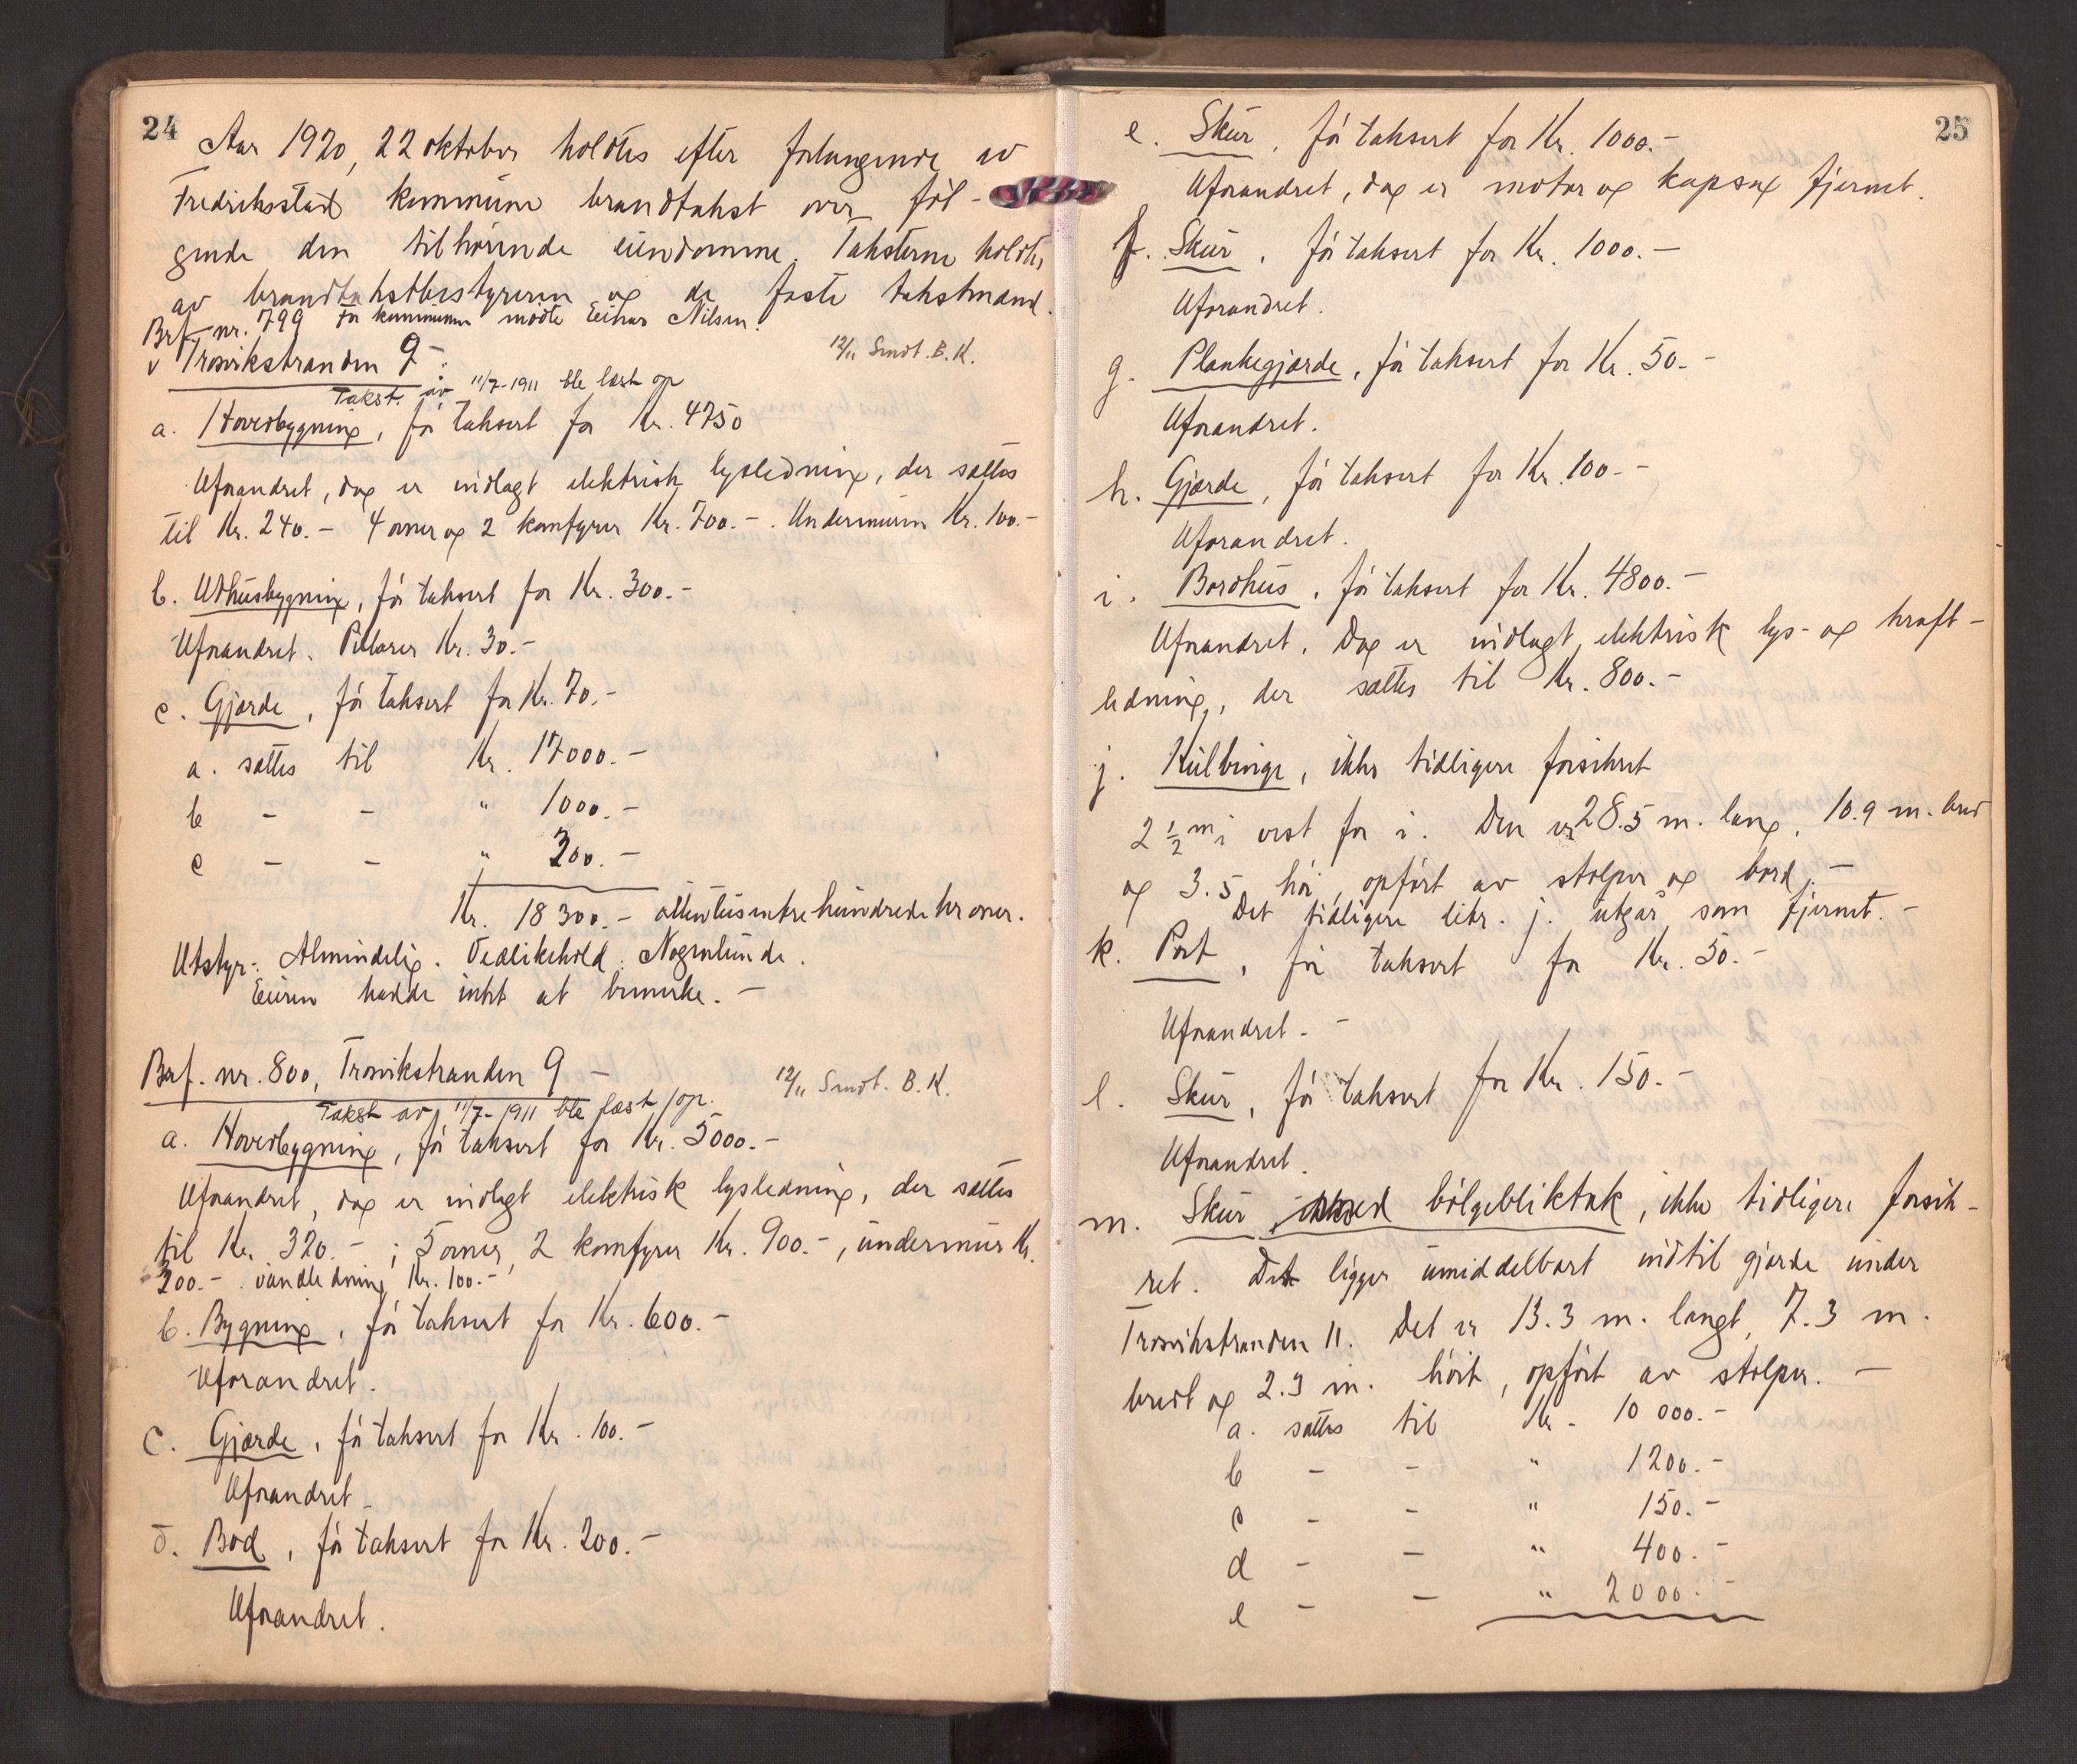 24
Aar 1920, 22 oktober holdtes efter forlangende av
Fredriksstad kommune brandtakst over føl-
gende den tilhørende eiendomme. Taksterne holdtes
av brandtakstbestyreren og de faste takstmænd.
For kommunen møtte Einar Nilsen.
Brf. nr. 799
v Trosvikstranden 9 - :
12/11 Sendt. B. K.
Takst. av 11/7-1911 ble læst op
a. Hovedbygning, før taksert for Kr. 4750
Uforandret, dog er indlagt elektrisk lysledning, der sættes
til Kr. 240.- 4 ovner og 2 komfyrer Kr. 700.-. Undermuren Kr. 100.-
b. Uthusbygning, før taksert for Kr. 300.-
Uforandret. Pillarer Kr. 30.-
c. Gjærde, før taksert for Kr. 70.-
a. sættes til Kr. 17000.-
b - - " 1000.-
c - - " 300.-
Kr. 18300.- attentusentrehundrede kroner.
Utstyr: Almindelig. Vedlikehold: Nogenlunde.
Eieren hadde intet at bemerke.-
Brf. nr. 800, Trosvikstranden 9 -
12/11 Sendt. B. K.
Takst av 11/7-1911 ble læst op.
a. Hovedbygning, før taksert for Kr. 5000.-
Uforandret, dog er indlagt elektrisk lysledning, der sættes
til Kr. 320.- ; 5 ovner, 2 komfyrer Kr. 900.-, undermur Kr.
300.- vandledning Kr. 100.-
b. Bygning, før taksert for Kr. 600.-
Uforandret.
c. Gjærde, før taksert for Kr. 100.-
Uforandret.
d. Bod, før taksert for Kr. 200.-
Uforandret.
25
e. Skur, før taksert for Kr. 1000.-
Uforandret, dog er motor og kapsag fjernet.
f. Skur, før taksert for Kr. 1000.-
Uforandret.
g. Plankegjærde, før taksert for Kr. 50.-
Uforandret.
h. Gjærde, før taksert for Kr. 100.-
Uforandret.
i. Bordhus, før taksert for Kr. 4800.-
Uforandret. Dog er indlagt elektrisk lys- og kraft-
ledning, der sættes til Kr. 800.-
j. Kulbinge, ikke tidligere forsikret
2 1/2 m i vest for i. Den er 28.5 m. lang, 10.9 m. bred
og 3.5 høi, opført av stolper og bord.-
Det tidligere litr. j. utgår som fjernet.-
k. Port, før taksert for Kr. 50.-
Uforandret.-
l. Skur, før taksert for Kr. 150.-
Uforandret.
m. Skur med bølgebliktak, ikke tidligere forsik-
ret. Det ligger umiddelbart indtil gjærde under
Trosvikstranden 11. Det er 13.3 m. langt, 7.3 m.
bredt og 2.3 m. høit, opført av stolper.-
a. sættes til Kr. 10 000.-
b - - " 1200.-
c - - " 150.-
d - - " 400.-
e - - " 2000.-